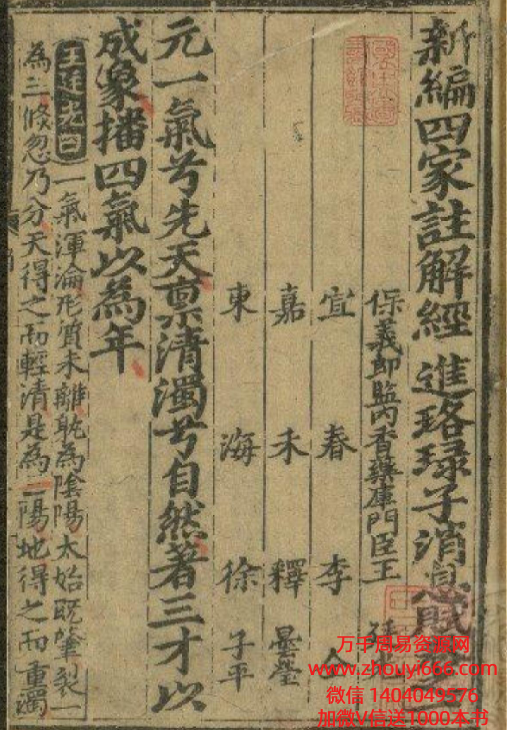 新編四家註解經進珞琭子消息賦
保義郎監內香藥庫門臣王
宜春李
嘉禾釋曇瑩
東海徐子平
元一氣兮先天稟清濁兮自然著三才以
成象播四氣以為年
王廷光曰一氣渾淪形質未離孰為陰陽太始既肇裂一
為三倏忽乃分天得之而輕清是為二陽地得之而重濁
万千周易资源网
www.zhouyi666.com
微信 1404049576
加微V信送1000本书